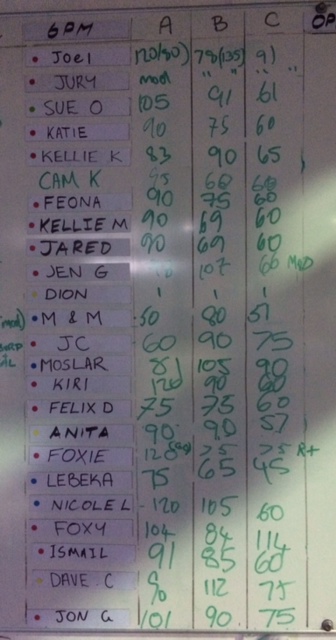 6PM A B C OP
Joel 120/80) 78(135) 91
JURY mod " " " "
SUE O 105 91 61
KATIE 90 75 60
KELLIE K 83 90 65
CAM K 95 60 60
FEONA 90 75 60
KELLIE M 90 69 60
JARED 90 69 60
JEN G 107 60 MOD
DION 1 1 1
mod) M & M 50 80 51
JC 60 90 75
MOSLAR 81 105 90
KIRI 120 90 60
FELIX D 75 75 60
ANITA 90 90 57
FOXIE 75 75 R+
LEBEKA 75 65 45
NICOLE L 120 105 60
FOXY 104 84 114
ISMAIL 91 85 60
DAVE C 90 112 75
JON G 101 90 75